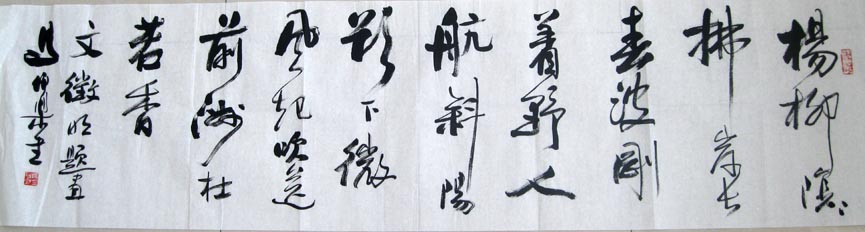 楊柳
拂岸長
春波剛
着野人
航斜陽
影下微
風起吹送
前洲杜
若香
文徵明題畫